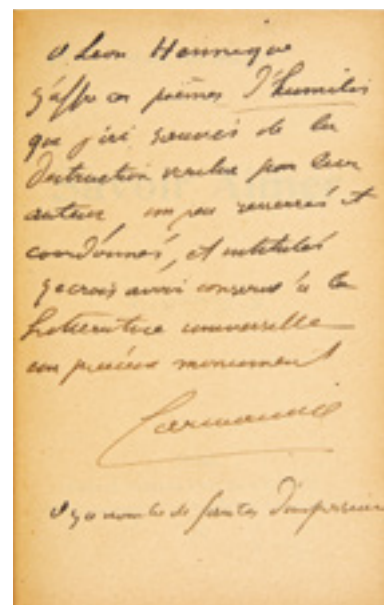 A Leon Hennique
j'offre ces poèmes d'humilis
que j'ai sauvés de la
destruction voulue par leur
auteur, un peu resserrés et
coordonnés, et intitulés
je crois avoir conservé à la
littérature universelle
un précieux monument
Larmandie
il y a nombre de fautes d'impression